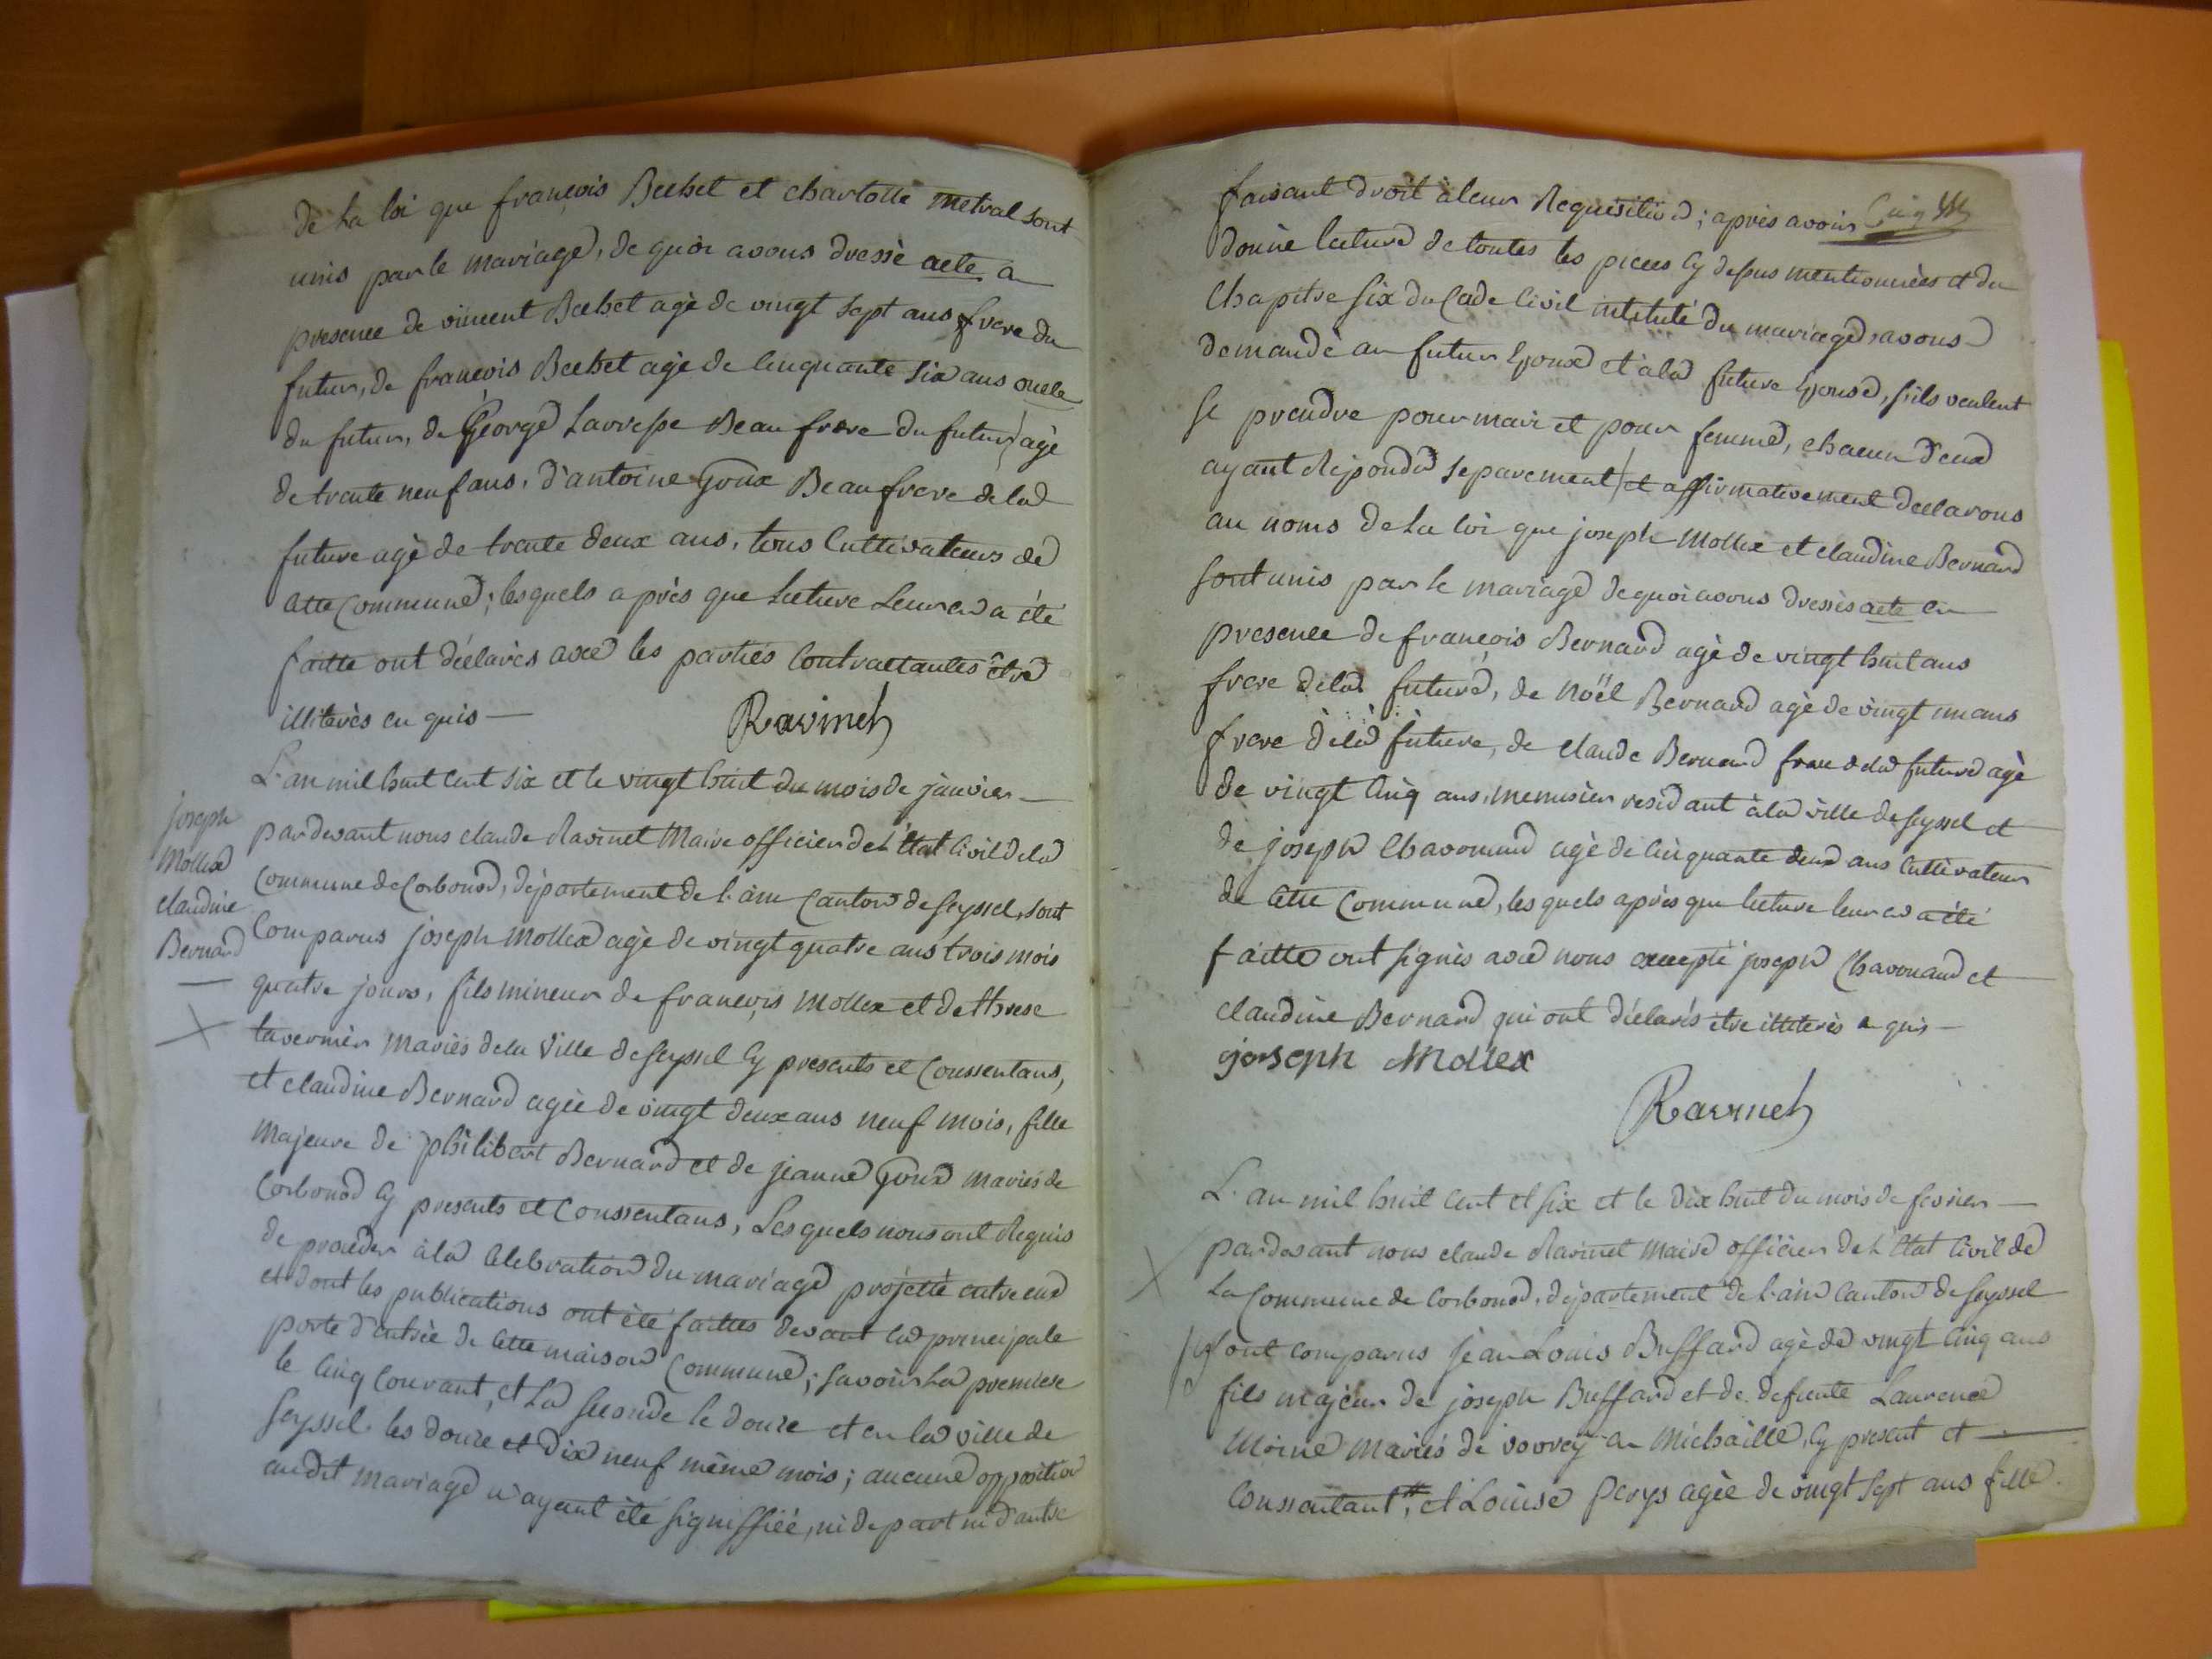 de la loi que françois Beehet et charlotte metral sont
unis par le mariage, de quoi avons dressé acte en
presence de vincent Beehet agé de vingt sept ans frere du
futur, de françois Beehet agé de cinquante six ans oncle
du futur, de George Lavresse Beau frere du futur agé
de trente neuf ans, d'antoine Goux Beau frere de la
future agé de trente deux ans, tous cultivateurs de
cette commune; lesquels après que lecture leur en a été
faitte ont déclarés avec les parties contractantes être
illiterés en quis —
Ravinet
L'an mil huit cent six et le vingt huit du mois de janvier —
joseph
Mollex
claudine
Bernard
—
pardevant nous claude Ravinet Maire officier de l'état civil de la
commune de Corbonod, département de l'ain canton de seyssel, sont
comparus joseph Mollex agé de vingt quatre ans trois mois
quatre jours, fils mineur de françois Mollex et de therese
tavernier mariés de la ville de seyssel cy presents et consentans,
et claudine Bernard agée de vingt deux ans neuf mois, fille
majeure de philibert Bernard et de jeanne Goux mariés de
Corbonod cy presents et consentans, Lesquels nous ont Requis
de proceder à la celebration du mariage projetté entre eux
et dont les publications ont été faittes devant la principale
porte d'entrée de cette maison commune; savoir La premiere
le cinq courant, et La seconde le douze et en la ville de
seyssel les douze et dix neuf même mois; aucune opposition
audit mariage n'ayant été signiffiée, ni de part ni d'autre
faisant droit à leur Requisition; après avoir
donné lecture de toutes les pieces cy dessus mentionnées et du
chapitre six du Code Civil intitulé du mariage, avons
demandé au futur Epoux et à la future Epouse, s'ils veulent
se prendre pour mari et pour femme, chacun d'eux
ayant Répondu separement et affirmativement declarons
au noms de la loi que joseph Mollex et claudine Bernard
sont unis par le mariage de quoi avons dressés acte en
presence de françois Bernard agé de vingt huit ans
frere de la future, de Noël Bernard agé de vingt un ans
frere de la future, de claude Bernard frere de la future agé
de vingt cinq ans, menusier residant à la ville de seyssel et
de joseph Chavonand agé de cinquante deux ans cultivateur
de cette commune, lesquels après que lecture leur en a été
faitte ont signés avec nous excepté joseph Chavonand et
claudine Bernard qui ont déclarés être illiterés en quis —
joseph Mollex
Ravinet
L'an mil huit cent et six et le dix huit du mois de fevrier —
pardevant nous claude Ravinet maire officier de l'état civil de
La Commune de Corbonod, département de l'ain canton de seyssel
sont comparus jean Louis Buffard agé de vingt cinq ans
fils majeur de joseph Buffard et de defunte Laurence
Moine mariés de vovrey en Michaille, cy present et —
consentant, et Louise Perys agée de vingt sept ans fille